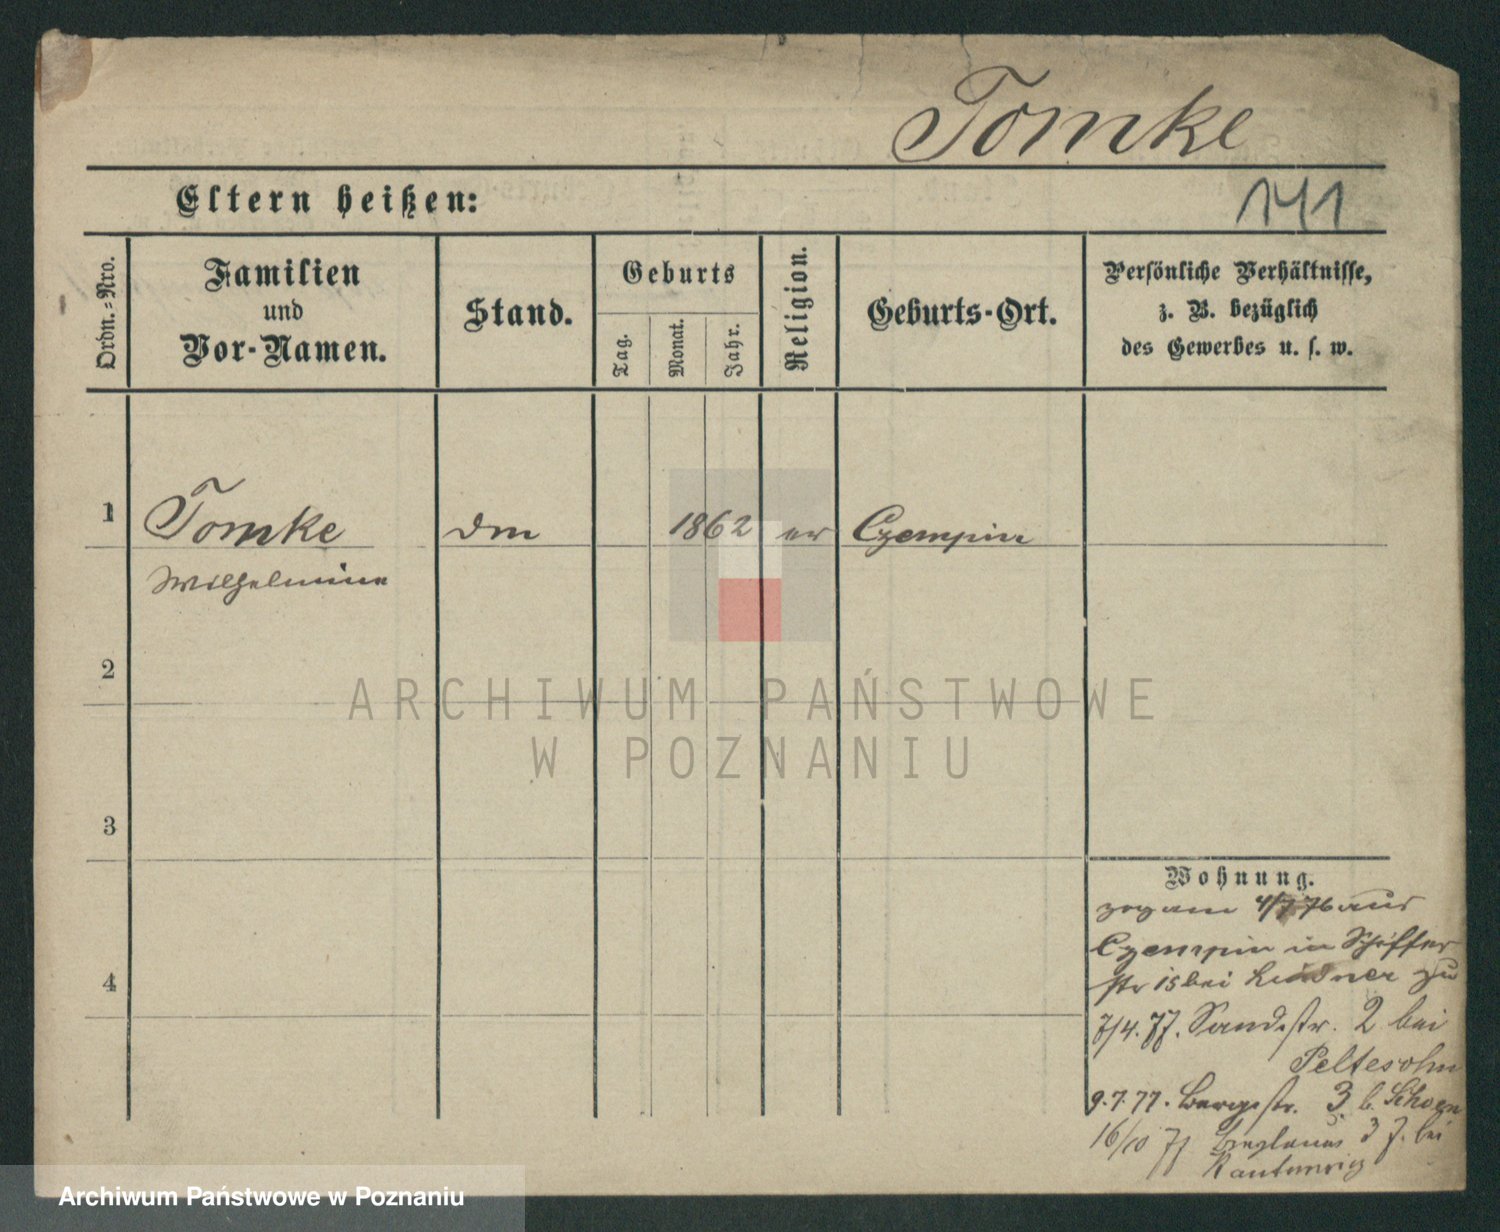 Tomke
Eltern heißen:
141
Ordn.-Nro.
Familien
und
Vor-Namen.
Stand.
Geburts
Tag.
Monat.
Jahr.
Religion.
Geburts-Ort.
Persönliche Verhältnisse,
z. B. bezüglich
des Gewerbes u. s. w.
1 Tomke Dm 1862 ev Czempin
Wilhelmine
2
ARCHIWUM PAŃSTWOWE
W POZNANIU
3
Wohnung.
zog am 4/7 76 aus
Czempin in Schiffer
4
str 15 bei Lindner zu
7/4. 77. Sandstr. 2 bei
Peltesohn
9.7.77. Bergstr. 3 b. Schoen
16/10 77 3 J. bei
Archiwum Państwowe w Poznaniu